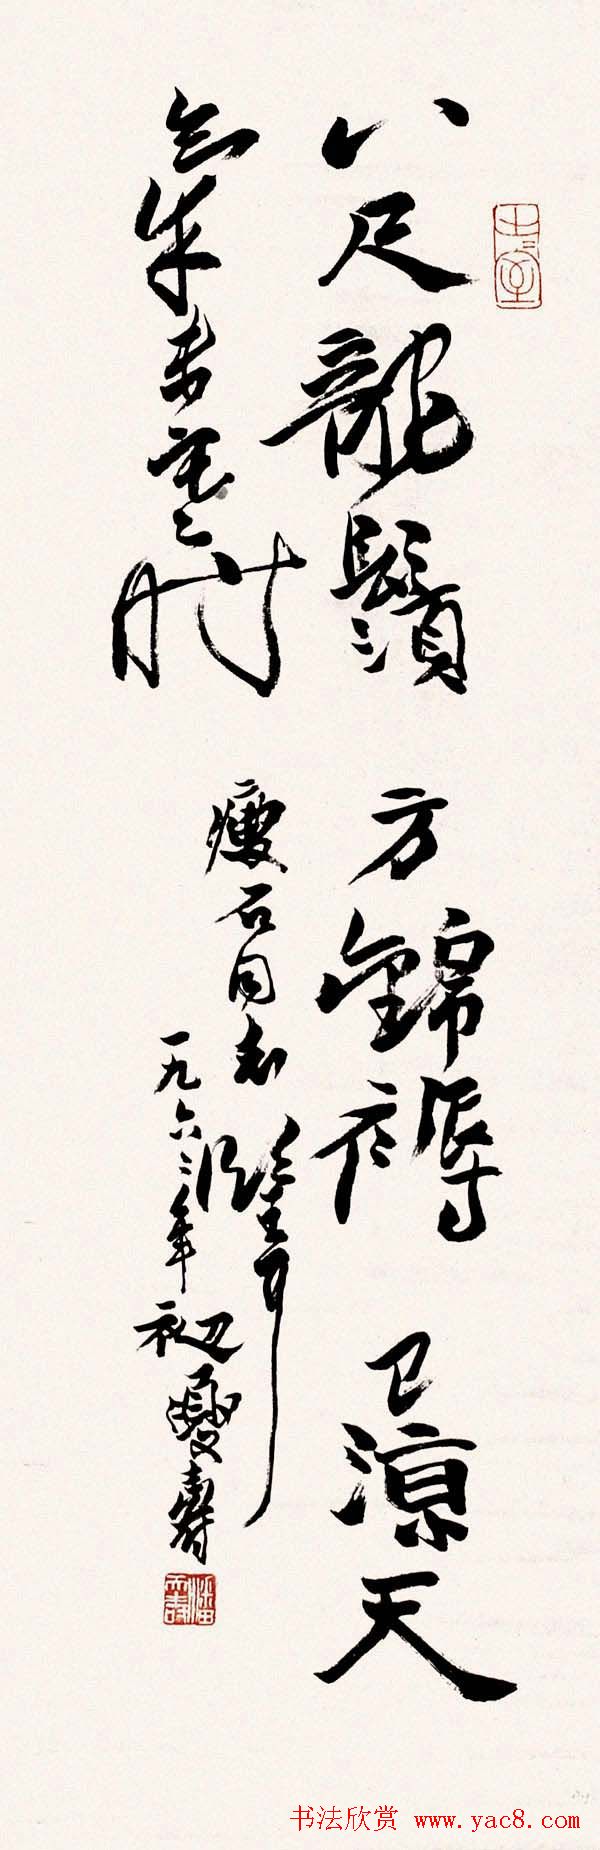 八尺龍鬚方錦褥已凉天
氣未寒時
瘦石同志鑒
一九六二年初夏壽
潘天壽
书法欣赏 www.yac8.com